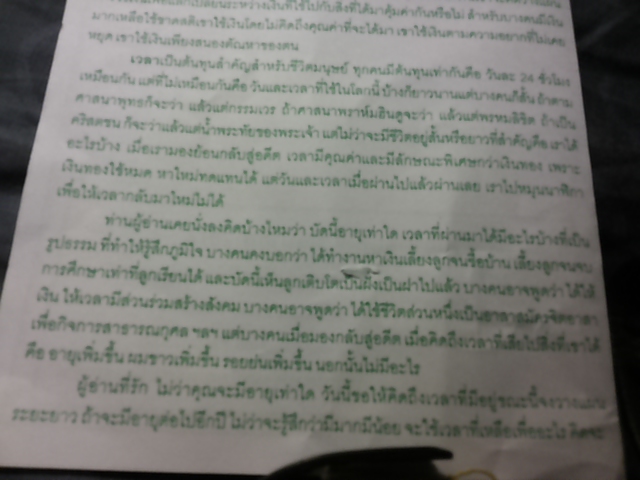 เพื่อแลกเปลี่ยนระหว่างเงินที่ใช้ไปกับสิ่งที่ได้มาคุ้มค่ากันหรือไม่ สำหรับบางคนมีเงิน
มากเหลือใช้ขาดสติเขาใช้เงินโดยไม่คิดถึงคุณค่าที่จะได้มา เขาใช้เงินตามความอยากที่ไม่เคย
หยุด เขาใช้เงินเพียงสนองตัณหาของตน
เวลาเป็นต้นทุนสำคัญสำหรับชีวิตมนุษย์ ทุกคนมีต้นทุนเท่ากันคือ วันละ 24 ชั่วโมง
เหมือนกัน แต่ที่ไม่เหมือนกันคือ วันและเวลาที่ใช้ในโลกนี้ บ้างก็ยาวนานแต่บางคนก็สั้น ถ้าตาม
ศาสนาพุทธก็จะว่า แล้วแต่กรรมเวร ถ้าศาสนาพราห์มฮินดูจะว่า แล้วแต่พรหมลิขิต ถ้าเป็น
คริสตชน ก็จะว่าแล้วแต่น้ำพระทัยของพระเจ้า แต่ไม่ว่าจะมีชีวิตอยู่สั้นหรือยาวที่สำคัญคือ เราได้
อะไรบ้าง เมื่อเรามองย้อนกลับสู่อดีต เวลามีคุณค่าและมีลักษณะพิเศษกว่าเงินทอง เพราะ
เงินทองใช้หมด หาใหม่ทดแทนได้ แต่วันและเวลาเมื่อผ่านไปแล้วผ่านเลย เราไปหมุนนาฬิกา
เพื่อให้เวลากลับมาใหม่ไม่ได้
ท่านผู้อ่านเคยนั่งลงคิดบ้างไหมว่า บัดนี้อายุเท่าใด เวลาที่ผ่านมาได้มีอะไรบ้างที่เป็น
รูปธรรม ที่ทำให้รู้สึกภูมิใจ บางคนคงบอกว่า ได้ทำงานหาเงินเลี้ยงลูกจนซื้อบ้าน เลี้ยงลูกจนจบ
การศึกษาเท่าที่ลูกเรียนได้ และบัดนี้เห็นลูกเติบโตเป็นฝั่งเป็นฝาไปแล้ว บางคนอาจพูดว่า ได้ให้
เงิน ให้เวลามีส่วนร่วมสร้างสังคม บางคนอาจพูดว่า ได้ใช้ชีวิตส่วนหนึ่งเป็นอาสาสมัครจิตอาสา
เพื่อกิจการสาธารณกุศล ฯลฯ แต่บางคนเมื่อมองกลับสู่อดีต เมื่อคิดถึงเวลาที่เสียไปสิ่งที่เขาได้
คือ อายุเพิ่มขึ้น ผมขาวเพิ่มขึ้น รอยย่นเพิ่มขึ้น นอกนั้นไม่มีอะไร
ผู้อ่านที่รัก ไม่ว่าคุณจะมีอายุเท่าใด วันนี้ขอให้คิดถึงเวลาที่มีอยู่ขณะนี้จงวางแผน
ระยะยาว ถ้าจะมีอายุต่อไปอีกปี ไม่ว่าจะรู้สึกว่ามีมากมีน้อย จะใช้เวลาที่เหลือเพื่ออะไร คิดจะ